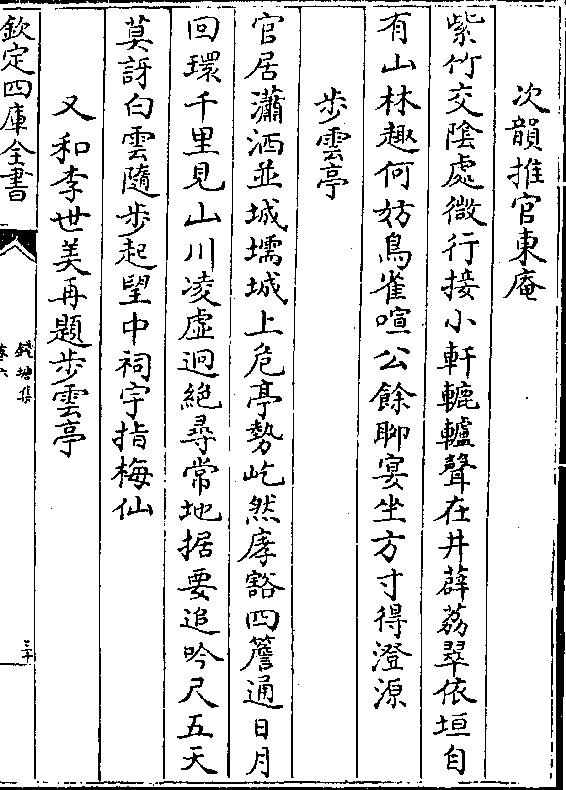 次韻推官東庵
紫竹交陰處微行接小軒轆轤聲在井薜荔翠依垣自
有山林趣何妨鳥雀喧公餘聊宴坐方寸得澄源
步雲亭
官居瀟洒並城壖城上危亭勢屹然庨豁四簷通日月
回環千里見山川凌虛迥絶尋常地据要追吟尺五天
莫訝白雲隨步起望中祠宇指梅仙
又和李世美再題步雲亭
欽定四庫全書
錢塘集
卷六
三十